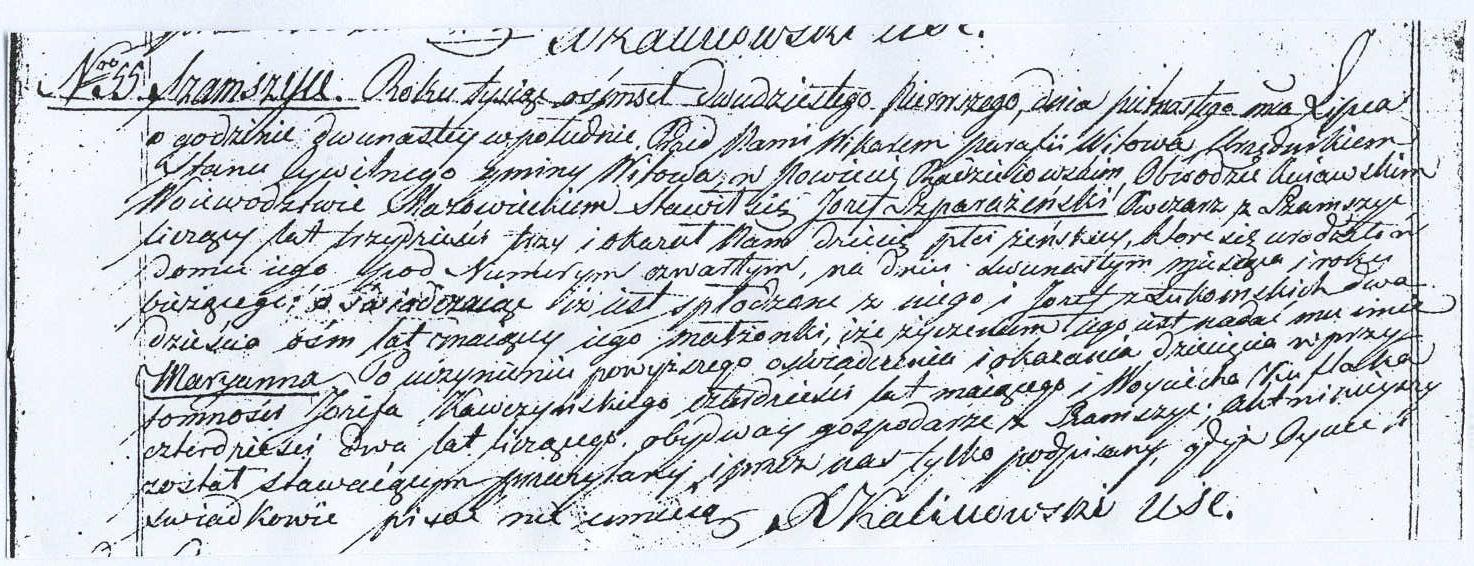 Kalinowski USC.
Nro 55. Szamszyce. Roku tysiąc ośmset dwudziestego pierwszego, dnia piętnastego Lipca
o godzinie dwunastey w południe, Przed Nami Wikarem parafii Witowa Urzędnikiem
Stanu Cywilnego gminy Witowa, w Powiecie Radziejowskim, Obwodzie Kujawskim
Woiewodztwie Mazowieckiem stawił się Jozef Szparażeński Owczarz z Szamszyc
liczący lat trzydzieści trzy i okazał Nam dziecię płci żeńskiey, ktore się urodziło w
domu iego pod Numerem czwartym, na dniu dwunastym miesiąca i roku
bieżącego; oświadczaiąc iż iest spłodzone z niego i Jozefy z Łukomskich dwa
dzieścia ośm lat maiącey iego małżonki, i że życzeniem iego iest nadać mu imie
Maryanna Po uczynieniu powyższego oświadczenia i okazania dziecięcia w przy
tomności Jozefa Kawczyńskiego czterdzieści lat maiącego i Woyciecha
czterdzieści dwa lat liczącego, obydway gospodarze z Szamszyc; Akt ninieyszy
został stawaiącym przeczytany i przez nas tylko podpisany, gdyż Oyciec i
świadkowie pisać nie umieią Kalinowski USC.